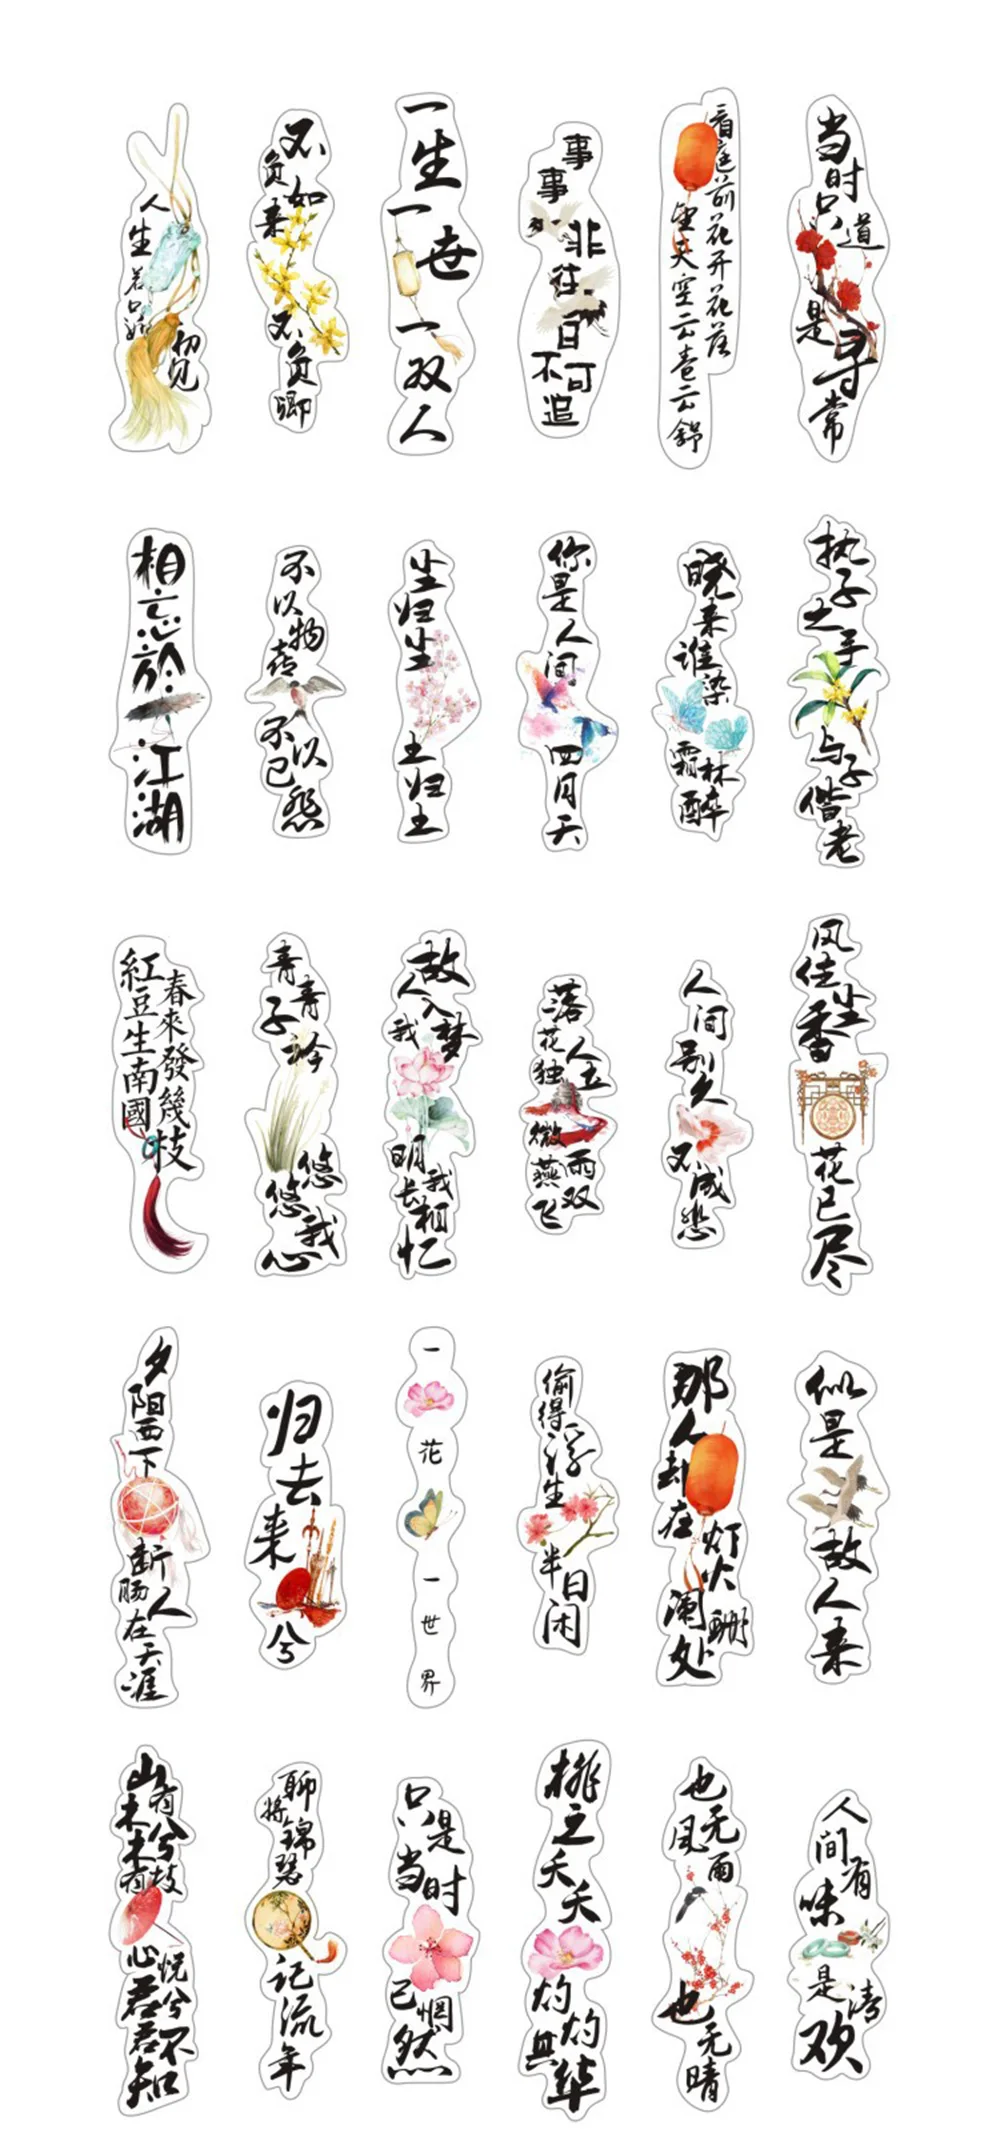 人生若只如初见
不负如来不负卿
一生一世一双人
事事非往日不可追
看庭前花开花落
望天空云卷云舒
当时只道是寻常
相忘於江湖
不以物喜不以己悲
尘归尘土归土
你是人间四月天
晓来谁染霜林醉
执子之手与子偕老
紅豆生南國
春來發幾枝
青青子衿悠悠我心
故人入我梦明我长相忆
落花人独立微雨燕双飞
人间别久不成悲
风住尘香花已尽
夕阳西下断肠人在天涯
归去来兮
一花一世界
偷得浮生半日闲
那人却在灯火阑珊处
似是故人来
山有木兮木有枝心悦君兮君不知
聊将锦瑟记流年
只是当时已惘然
桃之夭夭灼灼其华
也无风雨也无晴
人间有味是清欢